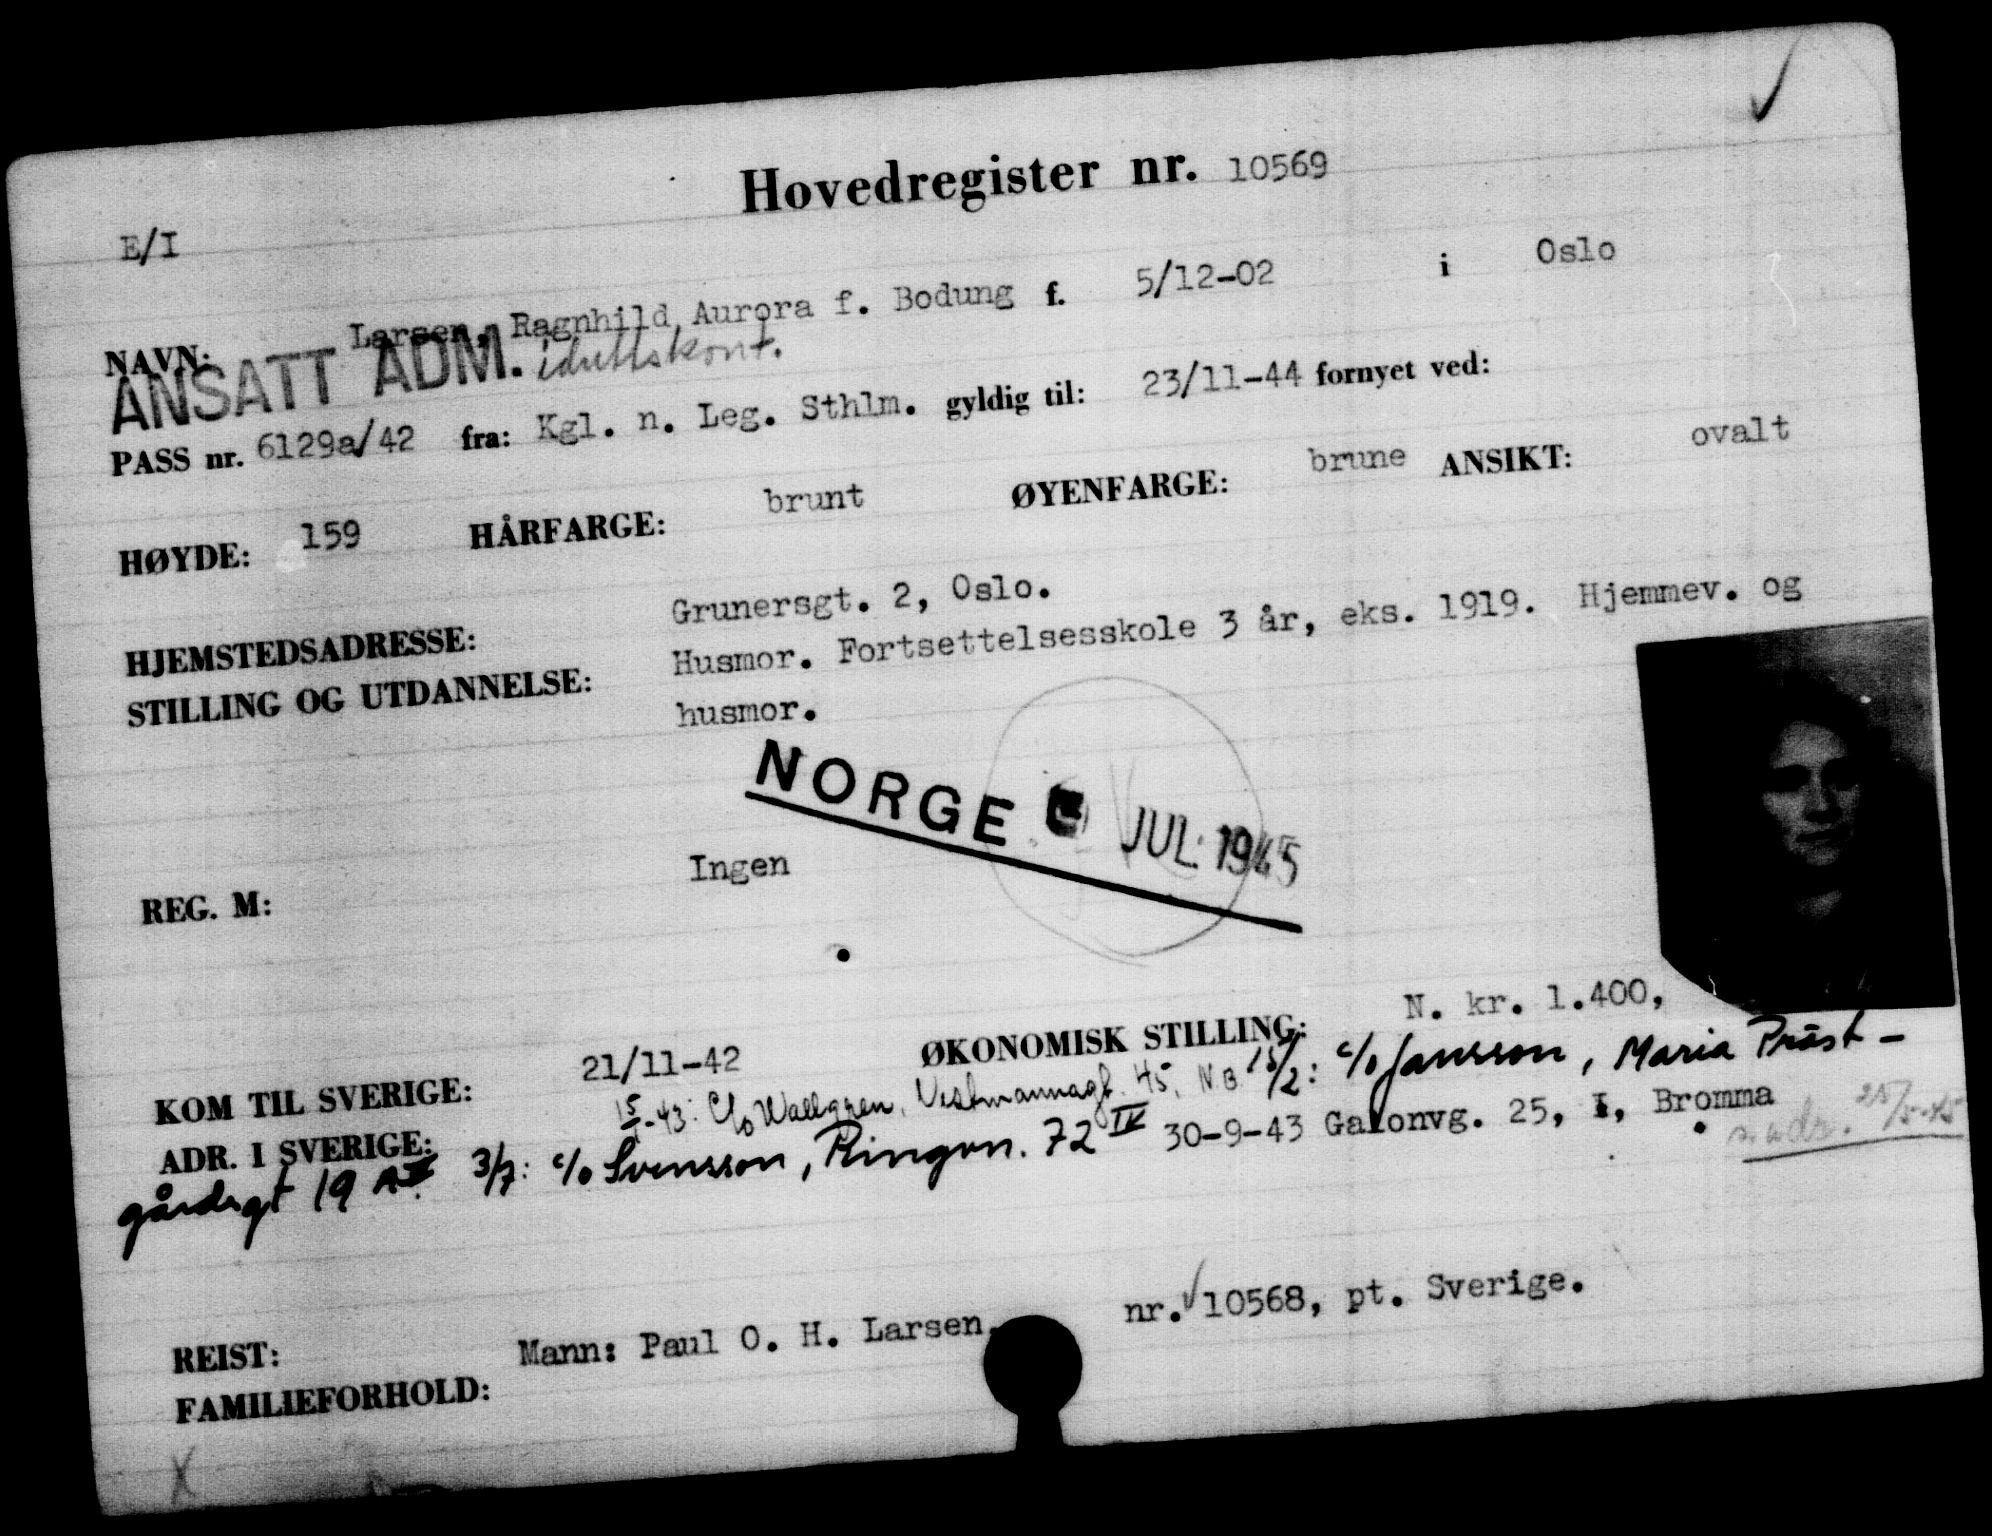 Hovedregister nr. 10569
E/I
NAVN: Larsen, Ragnhild Aurora f. Bodung f. 5/12-02 i Oslo
ANSATT ADM. idrettskont.
PASS nr. 6129a/42 fra: Kgl. n. Leg. Sthlm. gyldig til: 23/11-44 fornyet ved:
HØYDE: 159 HÅRFARGE: brunt ØYENFARGE: brune ANSIKT: ovalt
HJEMSTEDSADRESSE: Grunersgt. 2, Oslo.
STILLING OG UTDANNELSE: Husmor. Fortsettelsesskole 3 år, eks. 1919. Hjemmev. og
husmor.
NORGE JUL 1945
REG. M: Ingen
KOM TIL SVERIGE: 21/11-42 ØKONOMISK STILLING: N. kr. 1.400,
ADR. I SVERIGE: c/o Wallgren, Vestmannagt. 45, NB 15/2: c/o Jansson, Maria Präst-
gårdsgt 19 A 3/7: c/o Svensson, Ringvn. 72 IV 30-9-43 Galonvg. 25, I, Bromma
25/5-45
REIST:
FAMILIEFORHOLD: Mann: Paul O. H. Larsen, nr. 10568, pt. Sverige.
X